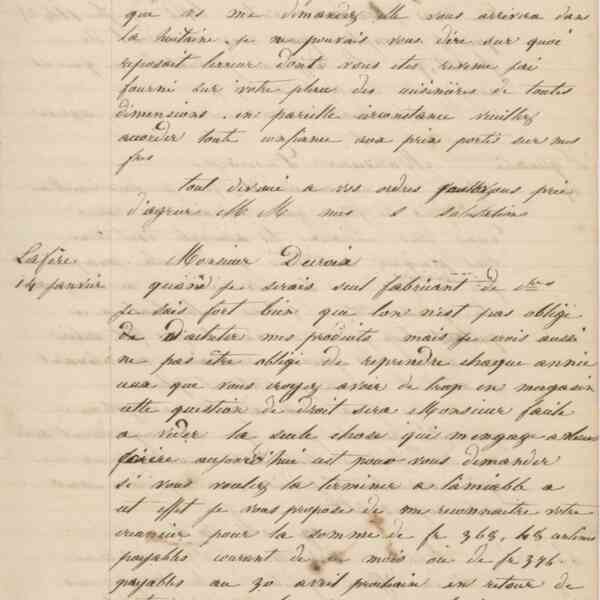 que vs me demandez elle vous arrivera dans
la huitaine. je ne pouvais vous dire sur quoi
reposait lerreur dont vous etes revenu jai
fourni sur votre place des cuisinières de toutes
dimensions. en pareille circonstance veuillez
accorder toute confiance aux prix portés sur mes
fres
tout devoué a vos ordres je vous prie
d'agreer MM mes s salutations
Lafère
14 janvier
Monsieur
quand je serais seul fabricant de
je sais fort bien que lon n'est pas obligé
de d'acheter mes produits mais je crois aussi
ne pas être obligé de reprendre chaque année
ceux que vous croyez avoir de trop en magasin
cette question de droit sera Monsieur facile
a vider la seule chose qui m'engage a
écrire aujourd'hui est pour vous demander
si vous voulez la terminer a l'amiable a
cet effet je vous propose de me reconnaitre votre
creancier pour la somme de fr 368, 48
payables courant de ce mois ou de fr 376
payables au 30 avril prochain en retour de